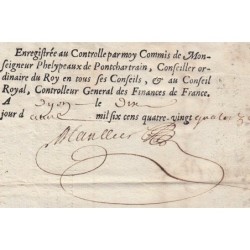 Enregistrée au Controlle par moy Commis de Mon-
seigneur Phelypeaux de Pontchartrain, Conseiller or-
dinaire du Roy en tous ses Conseils, & au Conseil
Royal, Controlleur General des Finances de France.
A le
jour d mil six cens quatre-vingt